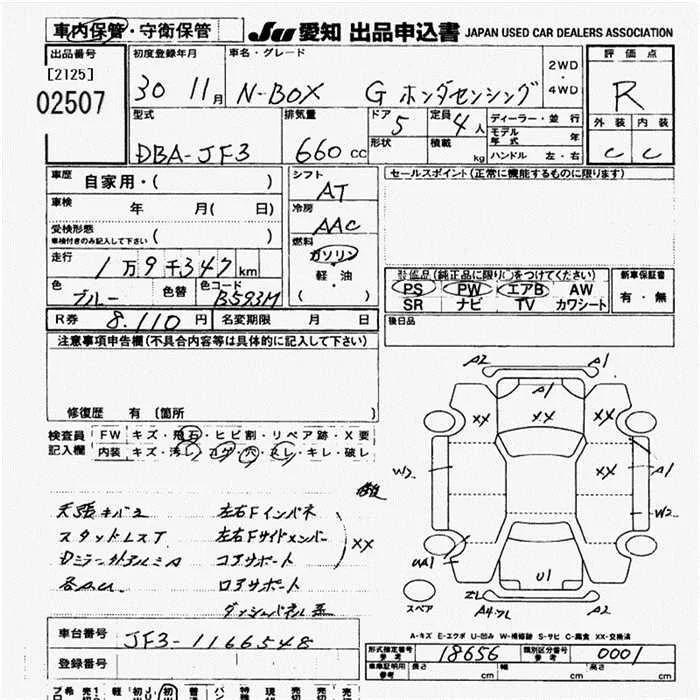 車内保管・守衛保管
JU 愛知 出品申込書 JAPAN USED CAR DEALERS ASSOCIATION
出品番号
[2125]
02507
初度登録年月
30 11月
車名・グレード
N-BOX G ホンダセンシング
2WD
・
4WD
評価点
R
外装 内装
C C
型式
DBA-JF3
排気量
660 cc
ドア
5
形状
定員
4人
積載
kg
ディーラー・並行
モデル年式 年
ハンドル 左・右
車歴
自家用・( )
車検
年 月( 日)
受検形態
車検付きのみ記入して下さい ( )
走行
1万9千347km
色
ブルー
色替
色コード
B593M
シフト
AT
冷房
AAC
燃料
ガソリン
軽・油
( )
セールスポイント(正常に機能するものに限ります)
装備品(純正品に限り○をつけてください)
PS PW エアB AW
SR ナビ TV カワシート
新車保証書
有・無
R券 8,110円 名変期限 月 日
後日品
注意事項申告欄(不具合内容等は具体的に記入して下さい)
修復歴 有(箇所 )
検査員
記入欄
FW キズ・飛石・ヒビ割・リペア跡・X要
内装 キズ・汚レ・コゲ・穴・スレ・キレ・破レ
天張キバミ 左右Fインパネ
スタッドレスT 左右Fサイドメンバー
コアサポート
ロアサポート
XX
A2 A1
A1
XX XX XX
XX
W2 A1
W2
UA1
U1
スペア
A2
A-キズ E-エクボ U-凹み W-補修跡 S-サビ C-腐食 XX-交換済
車台番号
JF3-1166548
登録番号
形式指定番号
参考
18656
類別区分番号
参考
0001
車庫証明用
参考
長さ cm 幅 cm 高さ cm